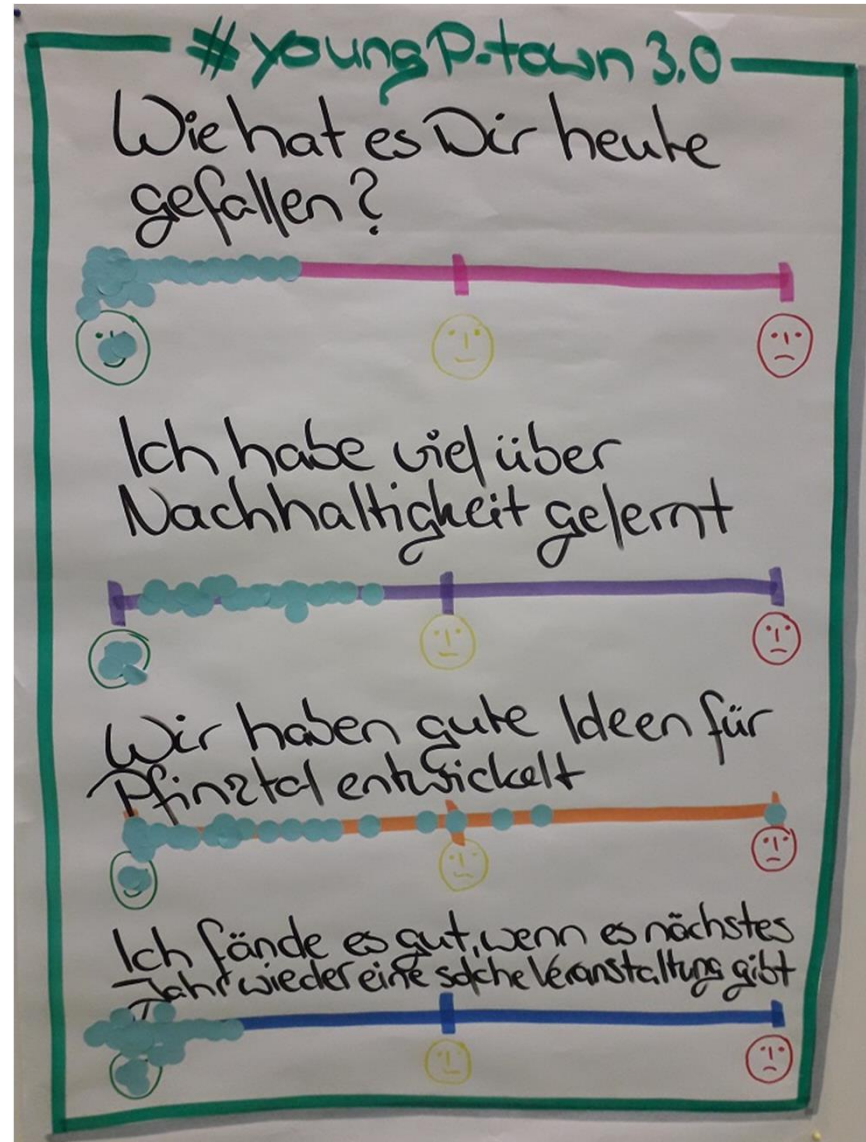 #youngP-town 3.0
Wie hat es Dir heute
gefallen?
Ich habe viel über
Nachhaltigkeit gelernt
Wir haben gute Ideen für
Pfinztal entwickelt
Ich fände es gut, wenn es nächstes
Jahr wieder eine solche Veranstaltung gibt